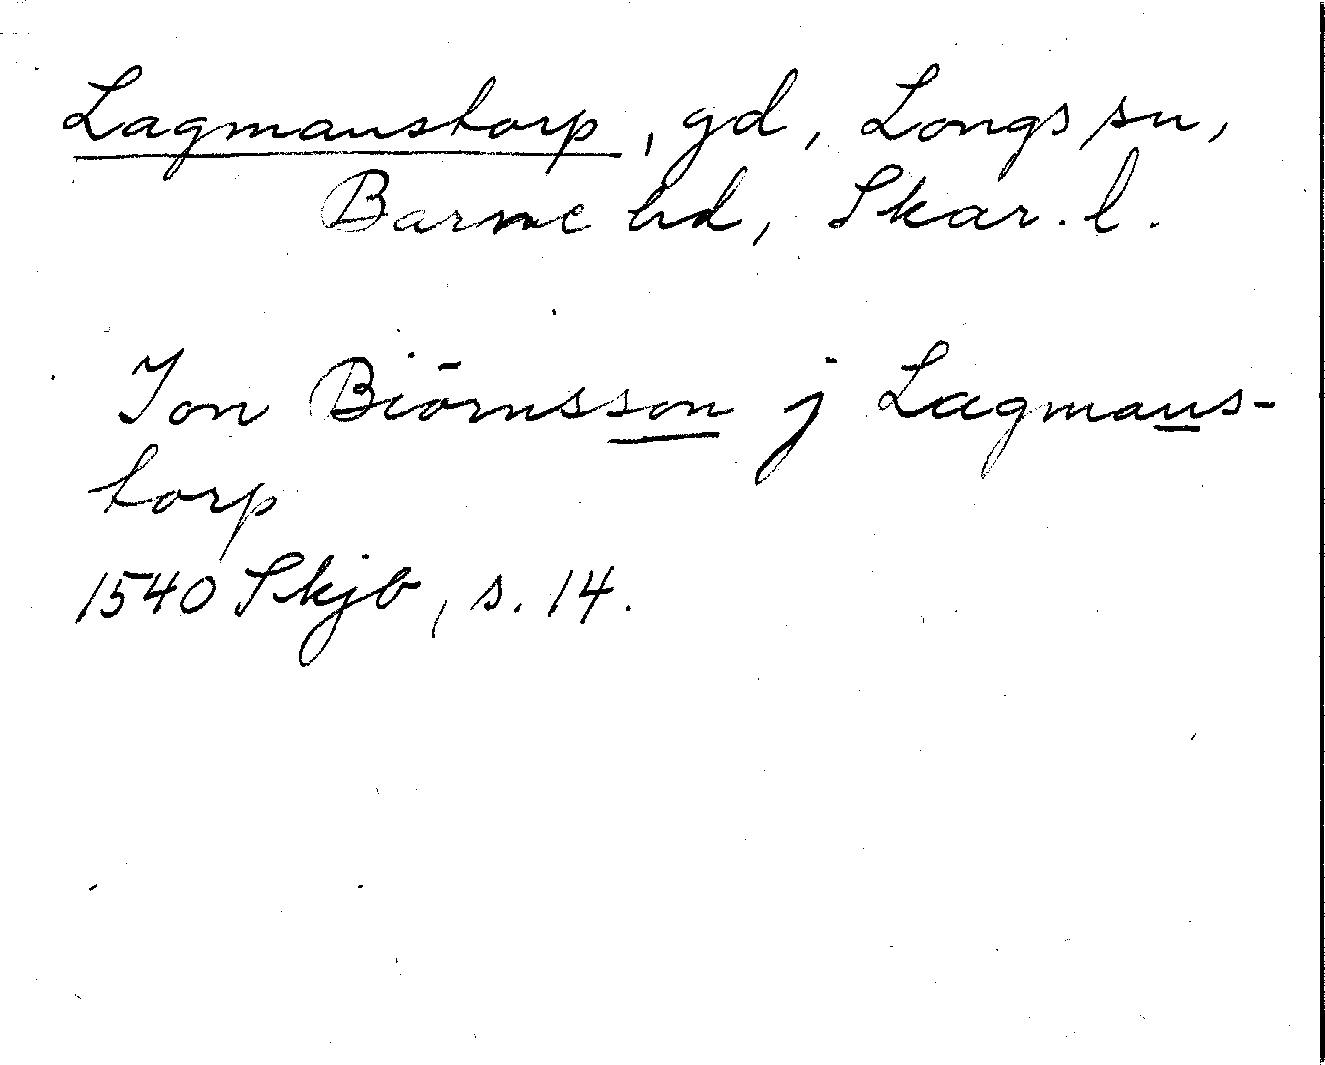 Lagmanstorp, gd, Longs sn,
Barne hd, Skar. l.
Jon Biörnsson j Lagmans-
torp
1540 Skjb, s. 14.